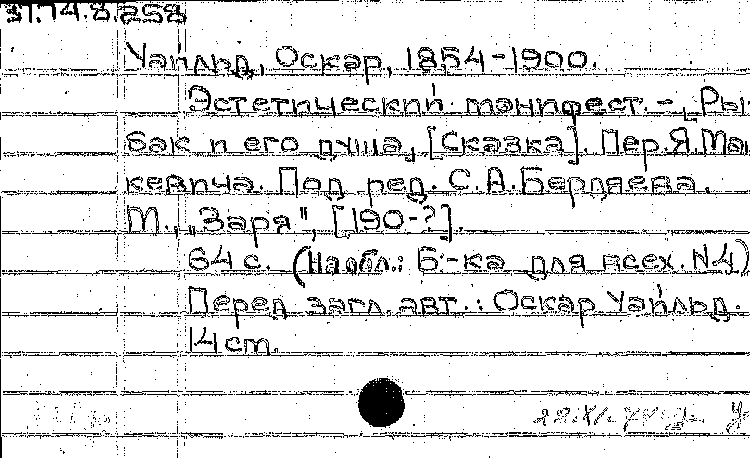 31.74.8.258
Уайльд, Оскар, 1854-1900.
Эстетический манифест. - [Ры-
бак и его душа, [Сказка]. Пер. Я. Мац-
кевича. Под ред. С.А. Бердяева.
М., „Заря", [190-?].
64 с. (На обл.: Б-ка для всех. N4)
Перед загл. авт.: Оскар Уайльд.
14 см.